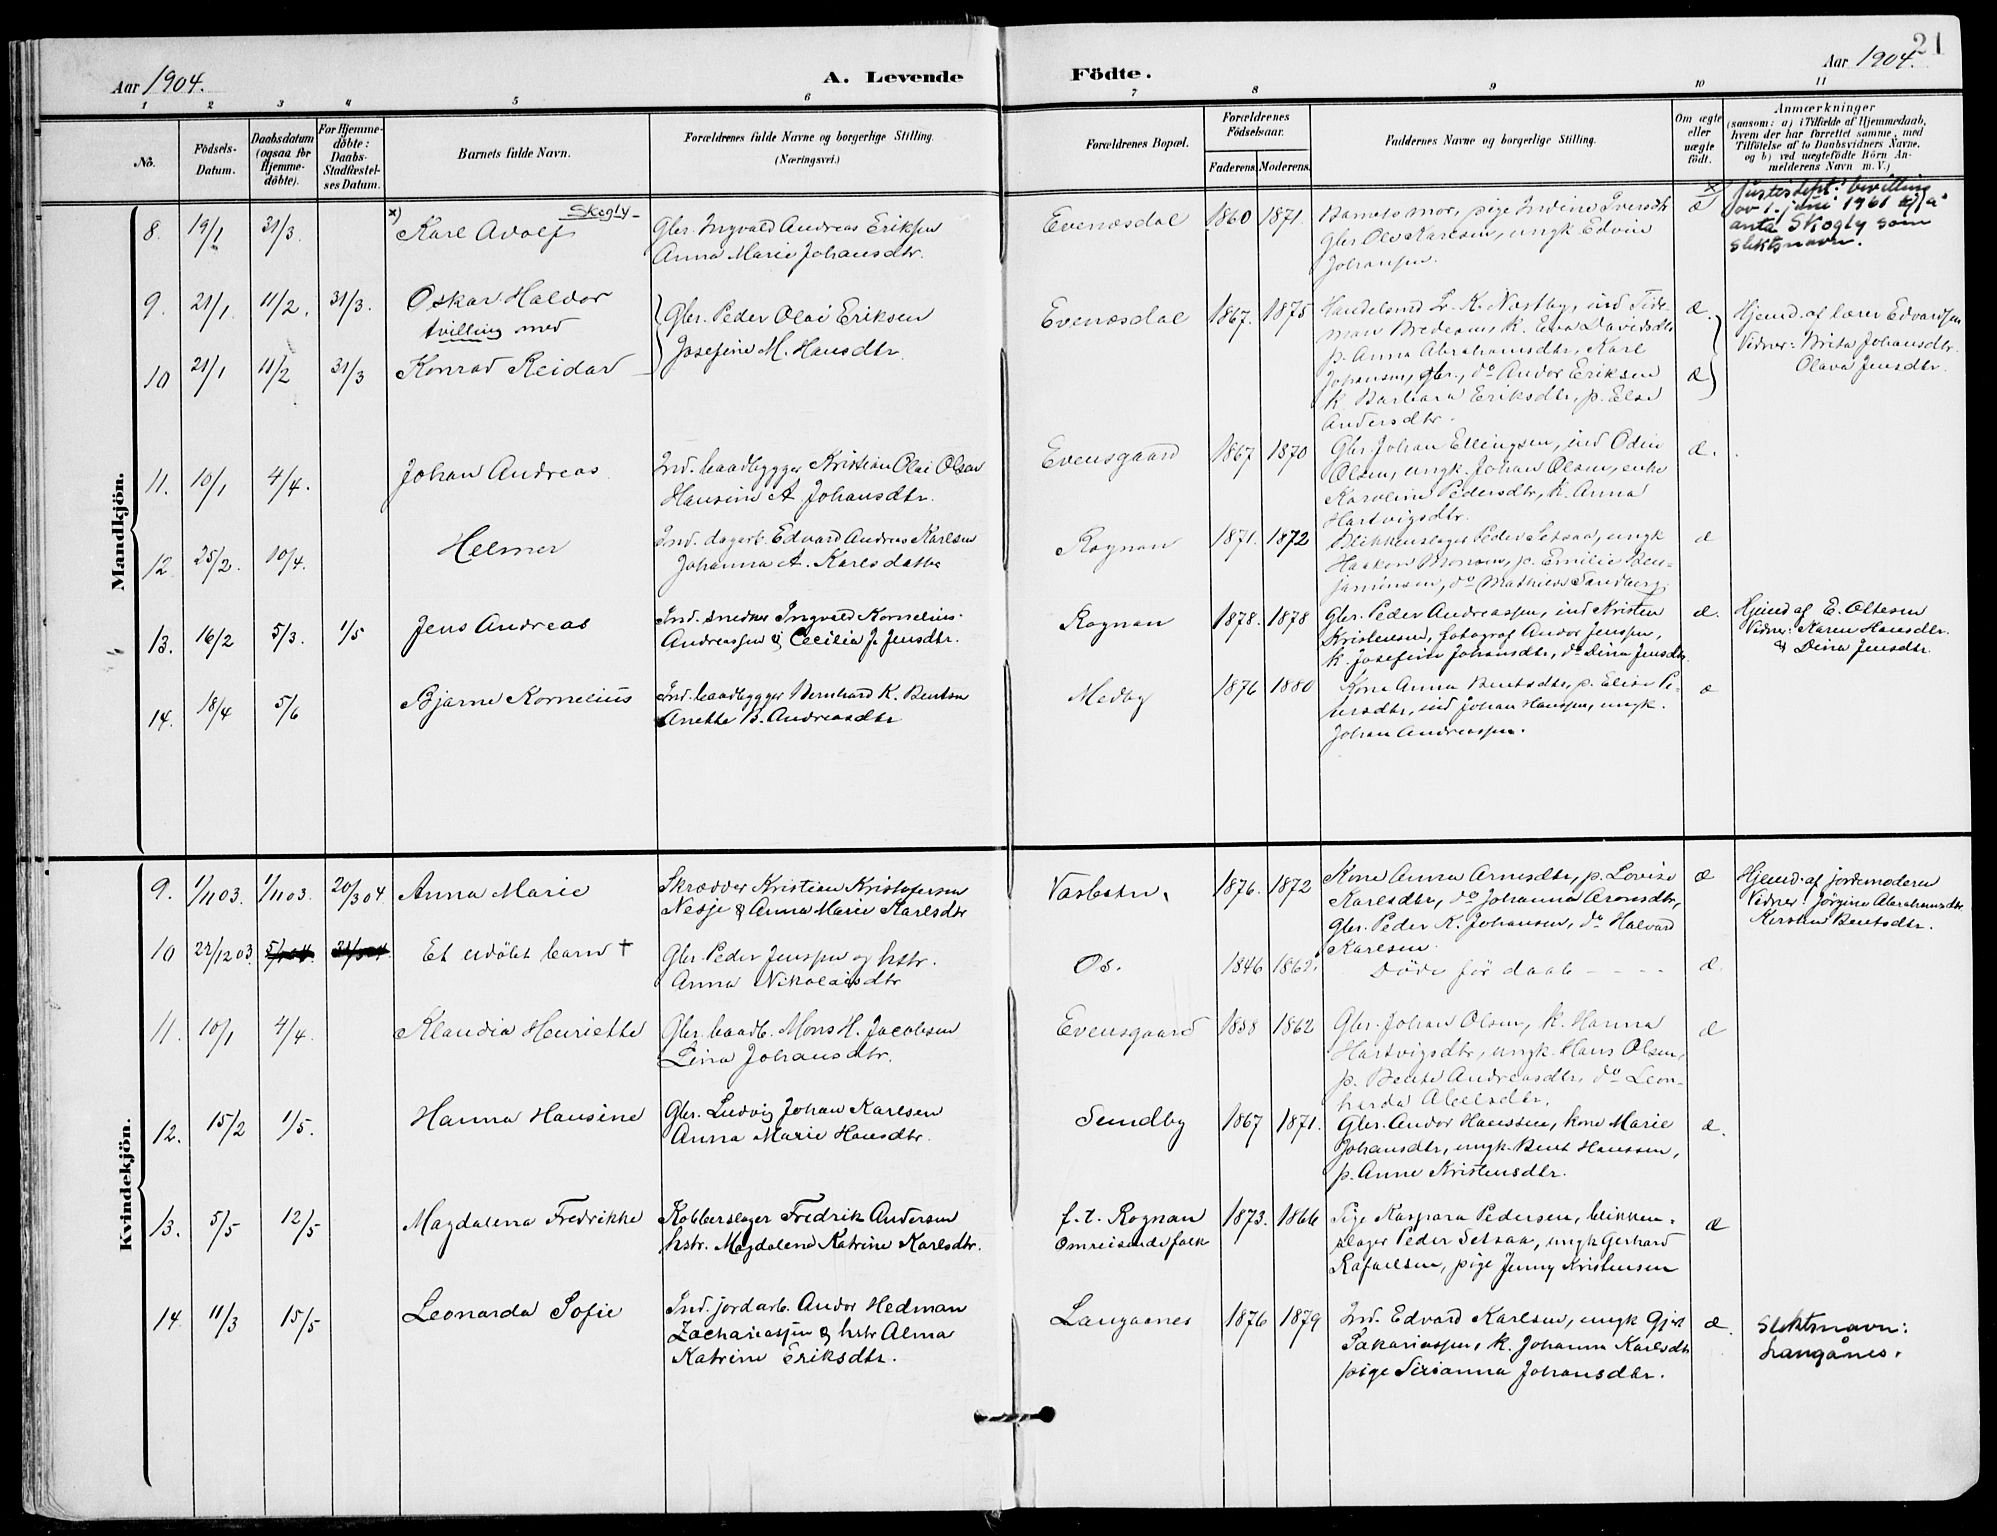 21
Aar 1904.
A. Levende
Födte.
Aar 1904.
1 2 3 4 5 6 7 8 9 10 11
No.
Födsels-
Datum.
Daabsdatum
(ogsaa for
Hjemme-
döbte).
For Hjemme-
döbte:
Daabs-
Stadfæstel-
ses Datum.
Barnets fulde Navn.
Forældrenes fulde Navne og borgerlige Stilling.
(Næringsvei.)
Forældrenes Bopæl.
Forældrenes
Födselsaar.
Faderens. Moderens.
Faddernes Navne og borgerlige Stilling.
Om ægte
eller
uægte
födt.
Anmærkninger
(saasom: a) i Tilfælde af Hjemmedaab,
hvem der har forrettet samme, med
Tilföielse af to Daabsvidners Navne,
og b) ved uægtefödte Börn An-
melderens Navn m. V.)
Mandkjön.
8. 19/1 31/3.
x) Karl Adolf
Skogly
Gbr. Ingvald Andreas Eriksen
Anna Marie Johansdtr.
Evenæsdal 1860 1871.
Barnets mor, pige Indine Iversdtr
Gbr. Ole Karlsen, ungk. Edvin
Johansen.
æ
x) Justisdept.s bevilling
av 1. juni 1961 til å
anta Skogly som
slektsnavn.
9. 21/1 11/2. 31/3.
Oskar Haldor
tvilling med
Gbr. Peder Olai Eriksen
Josefine M. Hansdtr.
Evenæsdal 1867. 1875
10 21/1 11/2 31/3
Konrad Reidar
Handelsmd L. K. Næstby, ind Tide-
man Bredesen, k. Eva Davidsdtr
p. Anna Abrahamsdtr, Karl
Johansen, gbr., do Andor Eriksen
k. Barbara Eriksdtr, p. Else
Andersdtr.
æ.
æ
Hjemd. af lærer Edvardsen
Vidner: Brita Johansdtr.
Olava Jensdtr.
11. 10/1 4/4.
Johan Andreas
Ind. baadbygger Kristian Olai Olsen
Hansine A. Johansdtr.
Evensgaard 1867 1870
Gbr. Johan Ellingsen, ind Odin
Olsen, ungk. Johan Olsen, enke
Karoline Pedersdtr, k. Anna
Hartvigsdtr.
æ.
12 25/2. 10/4.
Helmer
Ind. dagarb. Edvard Andreas Karlsen
Johanna A. Karlsdatter
Rognan 1871. 1872
Blikkenslager Peder Setsaa, ungk
Haakon Monsen, p. Emilie Ben-
jaminsen, do Mathilde Sandberg.
æ
13. 16/2 5/3. 1/5
Jens Andreas
Ind. snedker Ingvald Kornelius
Andreassen & Cecilia J. Jensdtr.
Rognan 1878. 1878
Gbr. Peder Andreassen, ind Kristen
Kristensen, fotograf Andor Jenssen,
k. Josefine Johansdtr, do Dina Jensdtr
æ.
Hjemd af E. Ottesen
Vidner: Karen Hansdtr.
& Dina Jensdtr.
14. 18/4 5/6
Bjarne Kornelius
Ind. baadbygger Bernhard K. Bentsen
Anette B. Andreasdtr
Medby 1876 1880
Kone Anna Bentsdtr, p. Elise Pe-
dersdtr, ind Johan Hanssen, ungk.
Johan Andreassen.
æ
Kvindekjön.
9. 1/1103. 1/1103. 20/304
Anna Marie
Skrædder Kristian Kristofersen
Nesje & Anna Marie Karlsdtr
Vasbotn. 1876. 1872
Kone Anna Arnesdtr, p. Lovise
Karlsdtr, do Johanna Aronsdtr,
Gbr. Peder K. Johansen, do Halvard
Karlsen.
æ
Hjemd. af jordemoderen
Vidner: Jørgine Abrahamsdtr
Kirsten Bentsdtr.
10 22/1203.
Et udøbt barn †
Gbr. Peder Jenssen og hstr.
Anna Nikolaisdtr
Os. 1846 1862.
Døde før daab - - - -
æ.
11. 10/1 4/4.
Klaudia Henriette
Gbr. baadb. Mons H. Jacobsen
Lina Johansdtr.
Evensgaard 1858 1862
Gbr. Johan Olsen, k. Hanna
Hartvigsdtr, ungk. Hans Olsen,
p. Bente Andreasdtr, do Leon-
harda Abelsdtr.
æ
12. 15/2 1/5.
Hanna Hansine
Gbr. Ludvig Johan Karlsen
Anna Marie Hansdtr.
Sundby 1867 1871.
Gbr. Andor Hanssen, kone Marie
Johansdtr, ungk. Bent Hanssen,
p. Anne Kristensdtr.
æ.
13. 5/5 12/5
Magdalena Fredrikke
Kobberslager Fredrik Andersen
hstr. Magdalene Katrine Karlsdtr.
f. t. Rognan
Omreisende folk
1873. 1866
Pige Kaspara Pedersen, blikken-
slager Peder Setsaa, ungk Gerhard
Rafaelsen, pige Jenny Kristensen
æ
14 11/3 15/5
Leonarda Sofie
Ind. jordarb. Andor Hedman
Zachariassen & hstr Alma
Katrine Eriksdtr.
Langaanes 1876 1879
Ind. Edvard Karlsen, ungk
Sakariassen, k. Johanna Karlsdtr
pige Sirianna Johansdtr.
æ.
Slektsnavn:
Langånes.